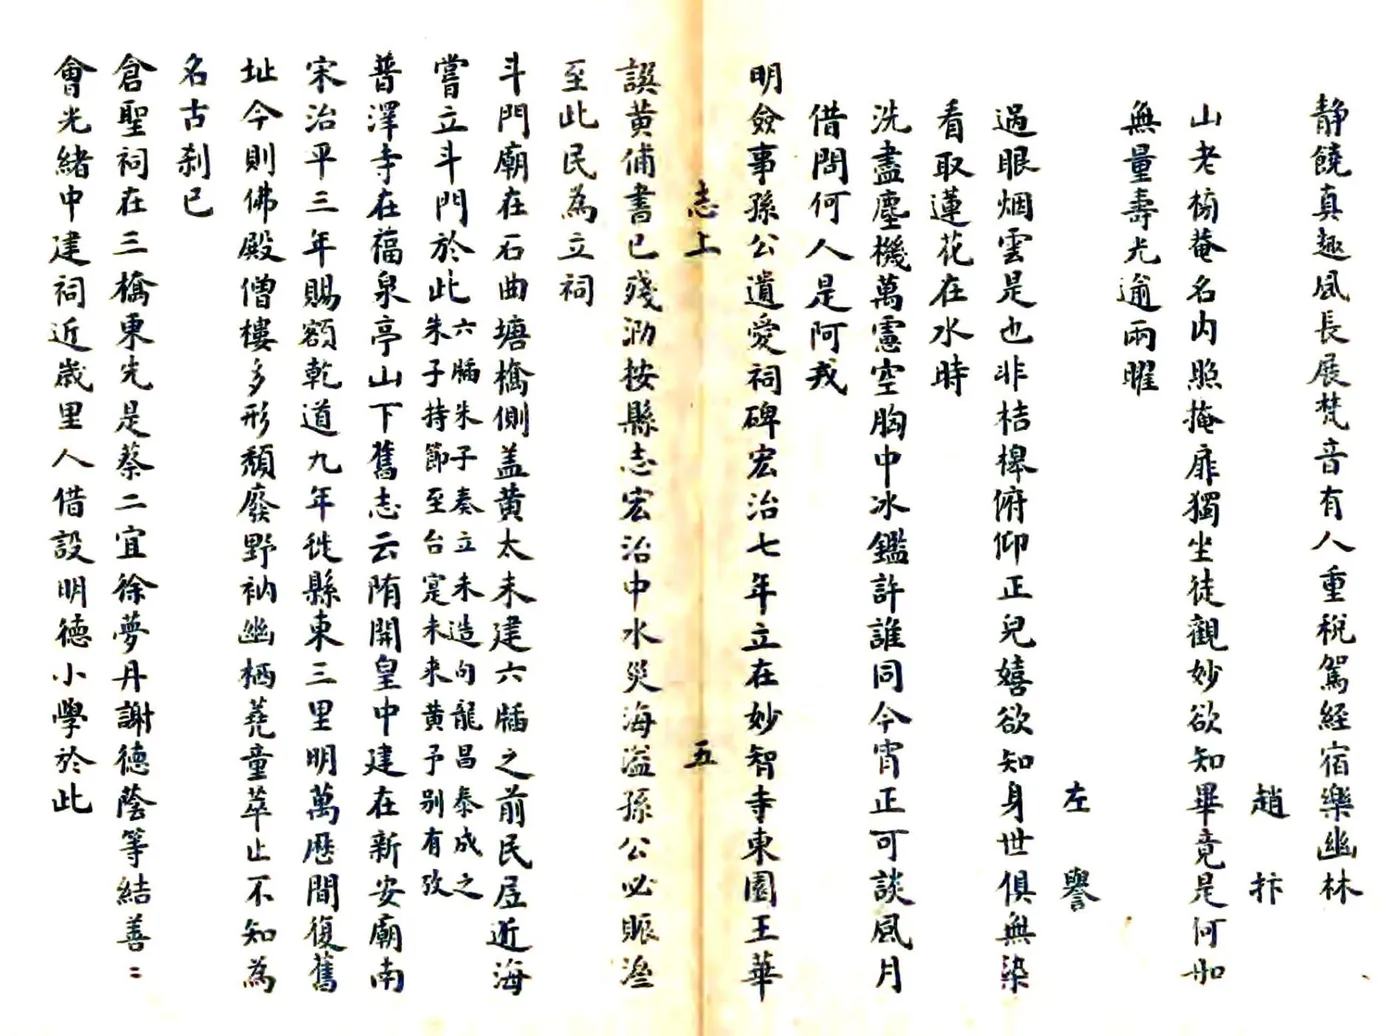 静饒真趣風長展梵音有人重税駕經宿樂幽林
趙抃
山老榜菴名内照掩扉獨坐徒觀妙欲知畢竟是何如
無量壽光逾兩曜
左譽
過眼烟雲是也非桔槔俯仰正兒嬉欲知身世俱無染
看取蓮花在水時
洗盡塵機萬慮空胸中冰鑑許誰同今宵正可談風月
借問何人是阿戎
明僉事孫公遺愛祠碑宏治七年立在妙智寺東園王華
志上 五
譔黄俌書已殘泐按縣志宏治中水災海溢孫公必賑濟
至此民為立祠
斗門廟在石曲塘橋側盖黄太未建六牐之前民居近海
嘗立斗門於此六牐朱子奏立未造句龍昌泰成之
朱子持節至台寔未来黄予别有攷
普澤寺在福泉亭山下舊志云隋開皇中建在新安廟南
宋治平三年賜額乾道九年徙縣東三里明萬歷間復舊
址今則佛殿僧樓多形頽廢野衲幽栖蕘童萃止不知為
名古刹已
倉聖祠在三橋東先是蔡二宜徐夢丹謝德蔭等結善〻
會光緒中建祠近歲里人借設明德小學於此